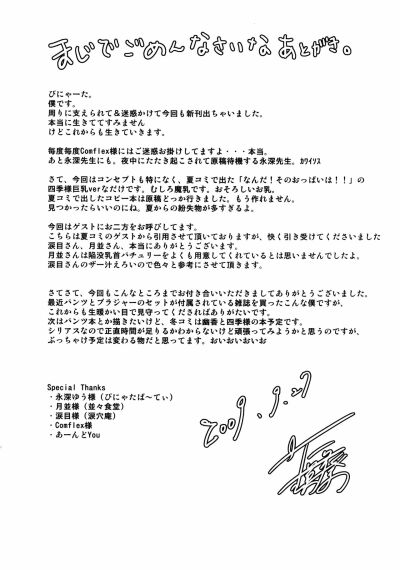 まじでごめんなさいなあとがき。
ぴにゃーた。
僕です。
周りに支えられて&迷惑かけて今回も新刊出ちゃいました。
本当に生きててすみません
けどこれからも生きていきます。
毎度毎度Comflex様にはご迷惑お掛けしてますよ・・・本当。
あと永深先生にも。夜中にたたき起こされて原稿待機する永深先生。ｶﾜｲｿｽ
さて、今回はコンセプトも特になく、夏コミで出た「なんだ!そのおっぱいは!!」の
四季様巨乳verなだけです。むしろ魔乳です。おそろしいお乳。
夏コミで出したコピー本は原稿どっか行きました。もう作れません。
見つかったらいいのにね。夏からの紛失物が多すぎるよ。
今回はゲストにお二方をお呼びしてます。
こちらは夏コミのゲストから引用させて頂いておりますが、快く引き受けてくださいました
涙目さん、月並さん、本当にありがとうございます。
月並さんは陥没乳首パチュリーをよくも用意してくれているとは思いませんでしたよ。
涙目さんのザー汁えろいので色々と参考にさせて頂きます。
さてさて、今回もこんなところまでお付き合いいただきましてありがとうございました。
最近パンツとブラジャーのセットが付属されている雑誌を買ったこんな僕ですが、
これからも生暖かい目で見守ってくださればありがたいです。
次はパンツ本とか描きたいけど、冬コミは幽香と四季様の本予定です。
シリアスなので正直時間が足りるかわからないけど頑張ってみようかと思うのですが、
ぶっちゃけ予定は変わる物だと思ってます。おいおいおいお
Special Thanks
・永深ゆう様(ぴにゃたぱ～てぃ)
・月並様(並々食堂)
・涙目様(涙穴庵)
・Comflex様
・あーんどYou
2009.9.27